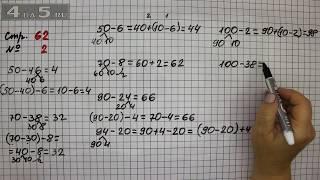 4 А 5.RU
Стр. 62
№ 2
2 1
50-6=40+(10-6)=44
40 10
100-2=90+(10-2)=98
90 10
50-46=4
40 6
(50-40)-6=10-6=4
70-8=60+2=62
60 10
100-38=
90-24=66
20 4
70-38=32
30 8
(90-20)-4=70-4=66
(70-30)-8=
=40-8=32
30 10
94-20=90+4-20=(90-20)+4=
90 4